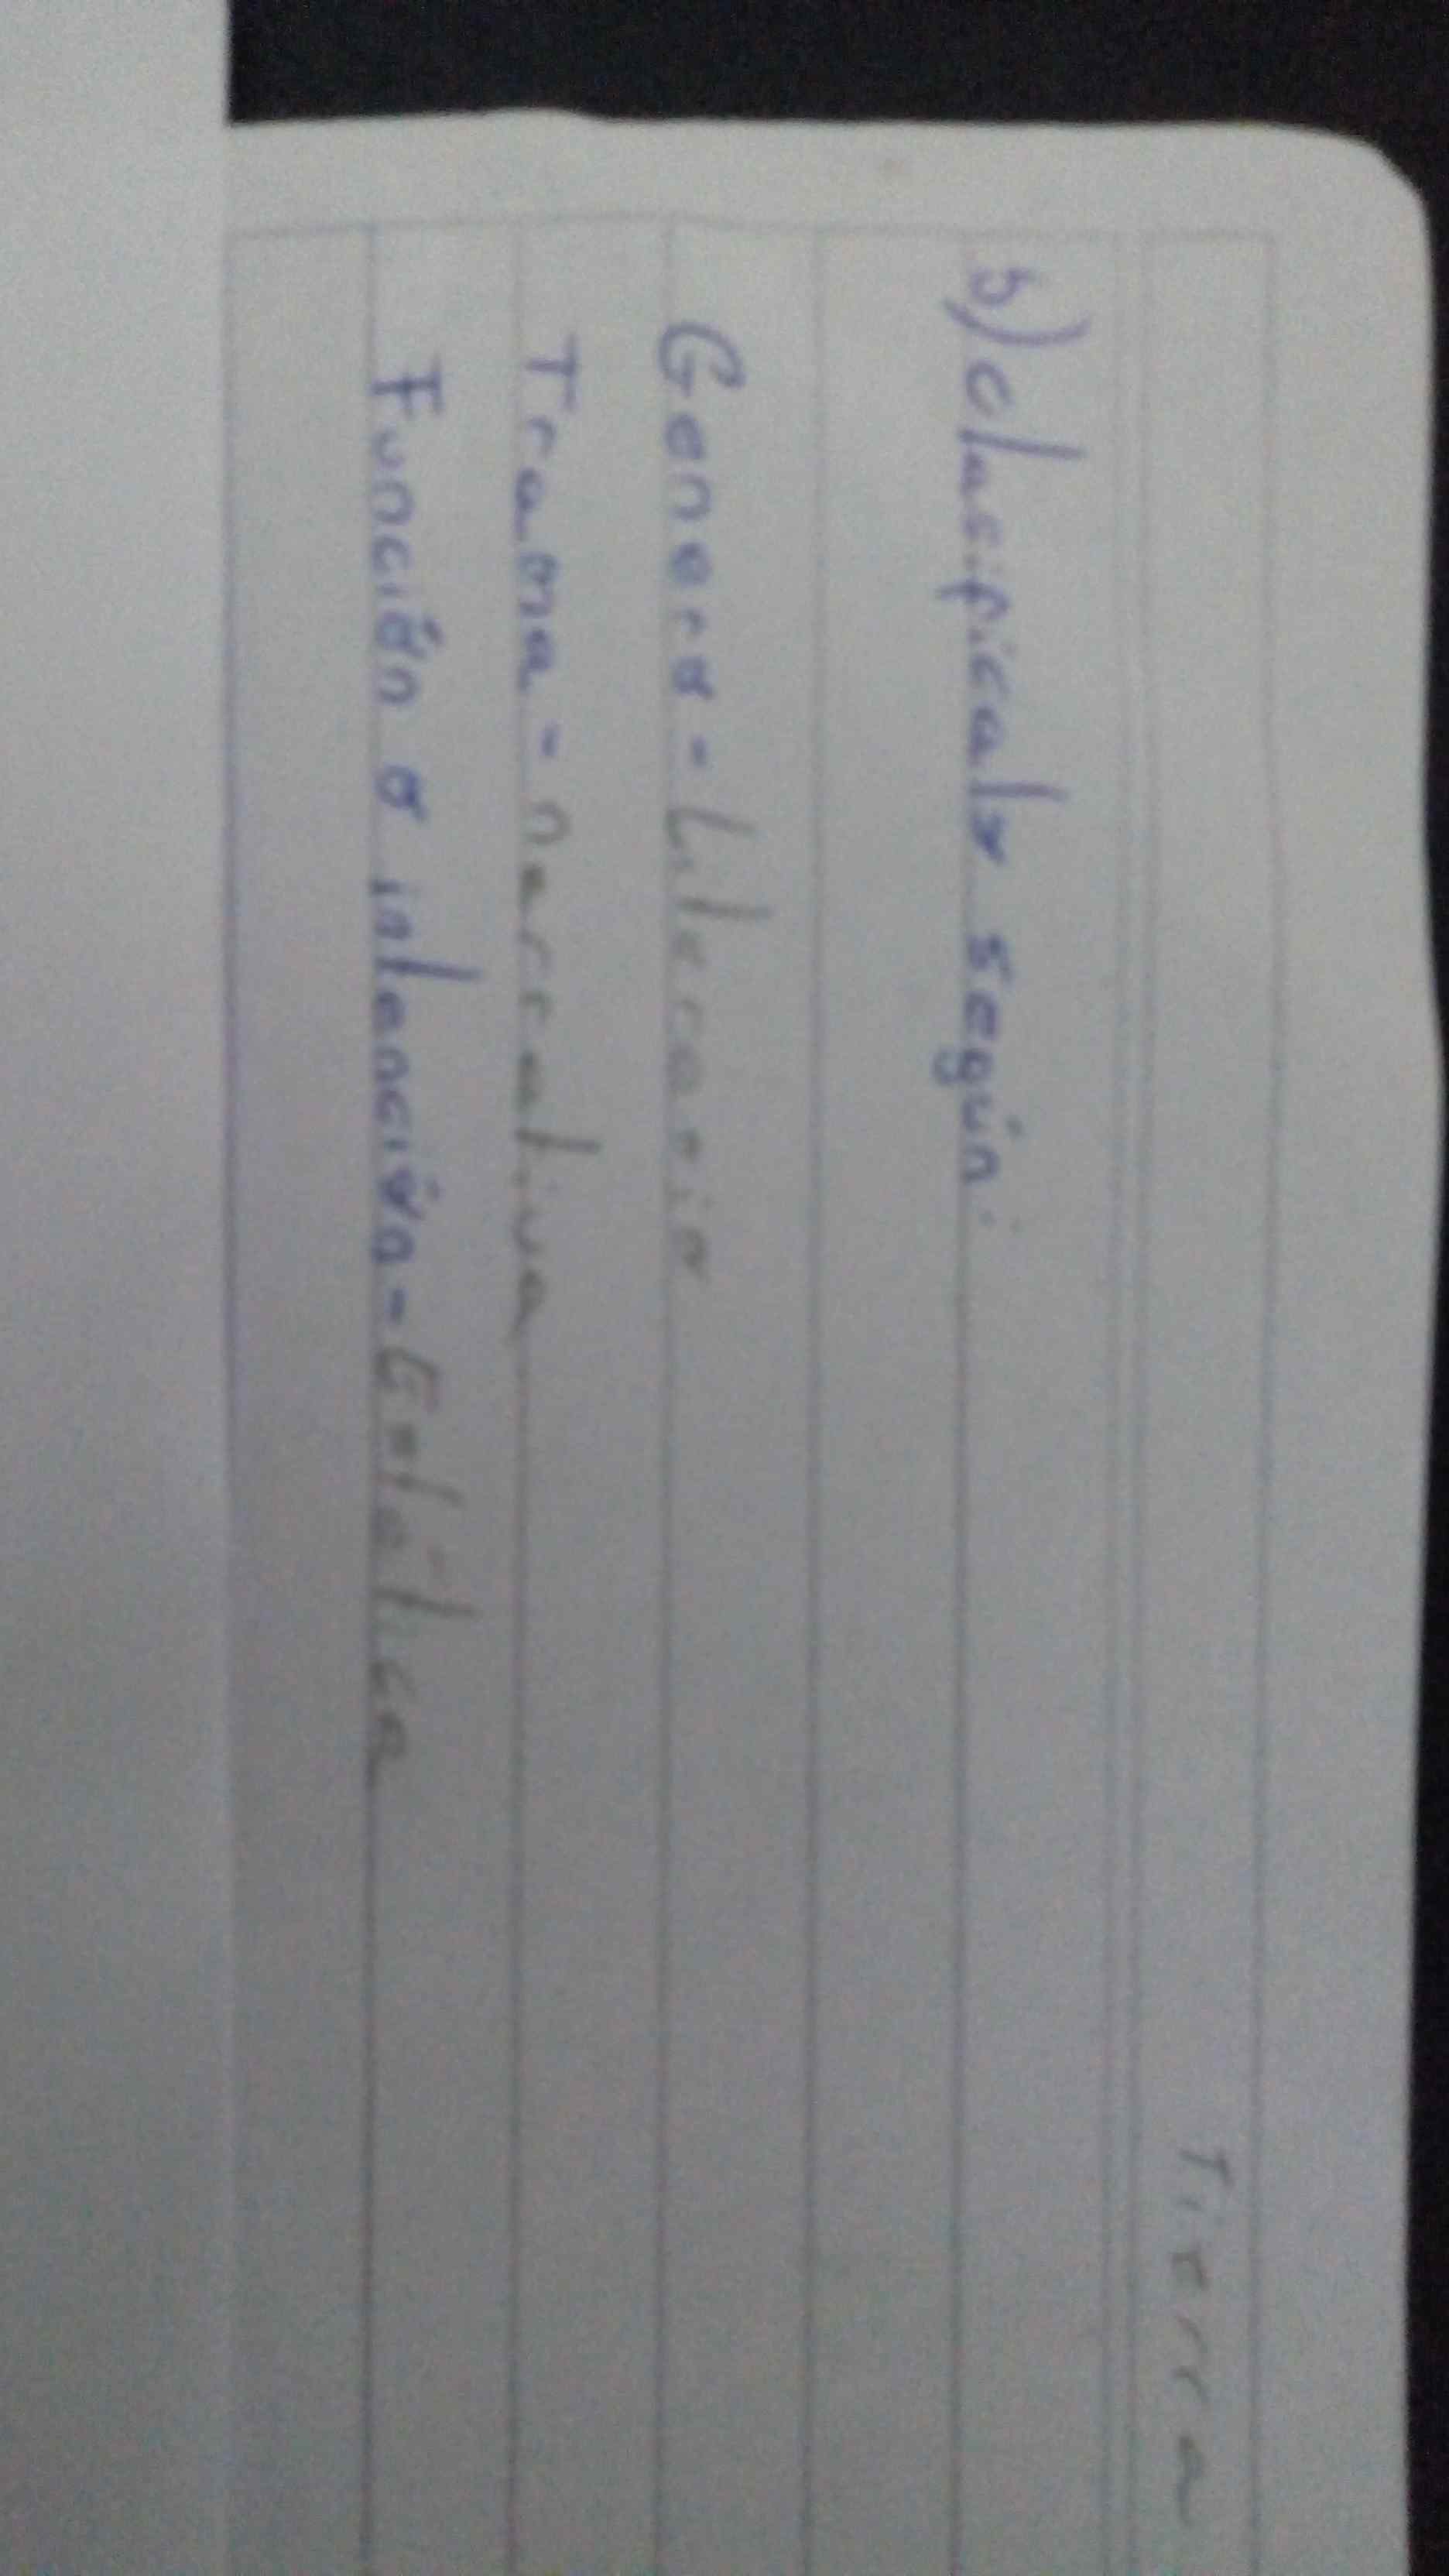 Tierra
b) clasificalo según:
Genero - Literario
Trama - narrativa
Función o intención - Estética